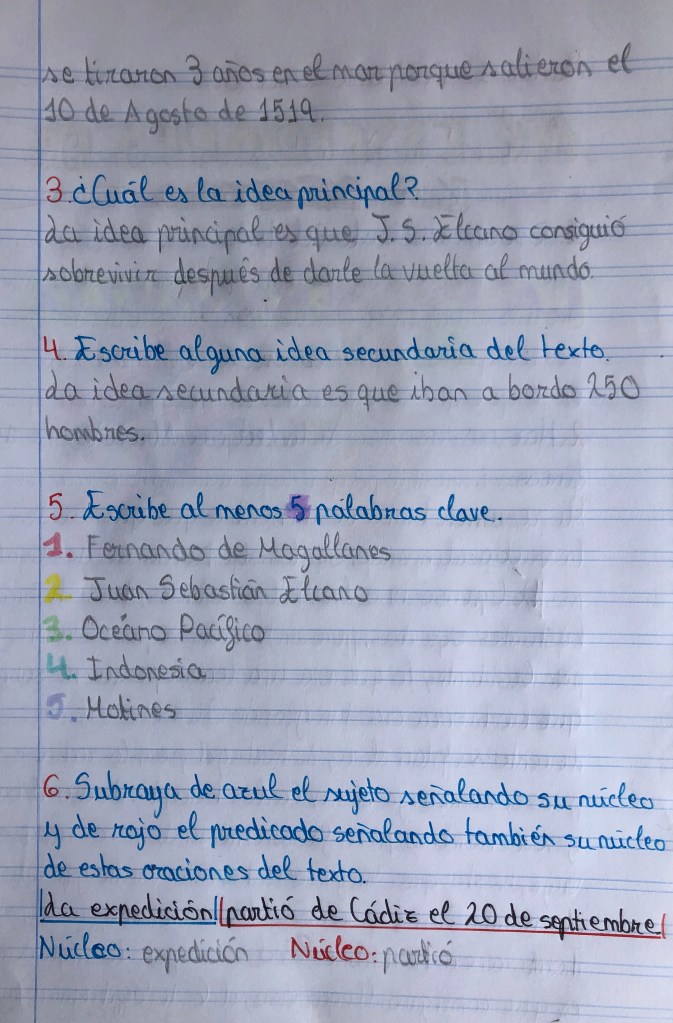 se tiraron 3 años en el mar porque salieron el
10 de Agosto de 1519.
3. ¿Cuál es la idea principal?
La idea principal es que J. S. Elcano consiguió
sobrevivir después de darle la vuelta al mundo.
4. Escribe alguna idea secundaria del texto.
La idea secundaria es que iban a bordo 250
hombres.
5. Escribe al menos 5 palabras clave.
1. Fernando de Magallanes
2. Juan Sebastián Elcano
3. Océano Pacífico
4. Indonesia
5. Motines
6. Subraya de azul el sujeto señalando su núcleo
y de rojo el predicado señalando también su núcleo
de estas oraciones del texto.
|La expedición||partió de Cádiz el 20 de septiembre|
Núcleo: expedición Núcleo: partió